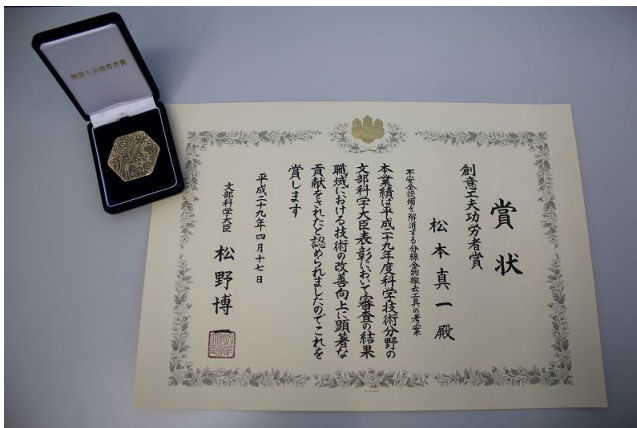 賞状
創意工夫功労者賞
松本真一殿
不安全設備を解消する分線金物撤去工具の考案
本業績は平成二十九年度科学技術分野の
文部科学大臣表彰において審査の結果
職域における技術の改善向上に顕著な
貢献をされたと認められましたのでこれを
賞します
平成二十九年四月十七日
文部科学大臣
松野博
創意工夫功労者賞